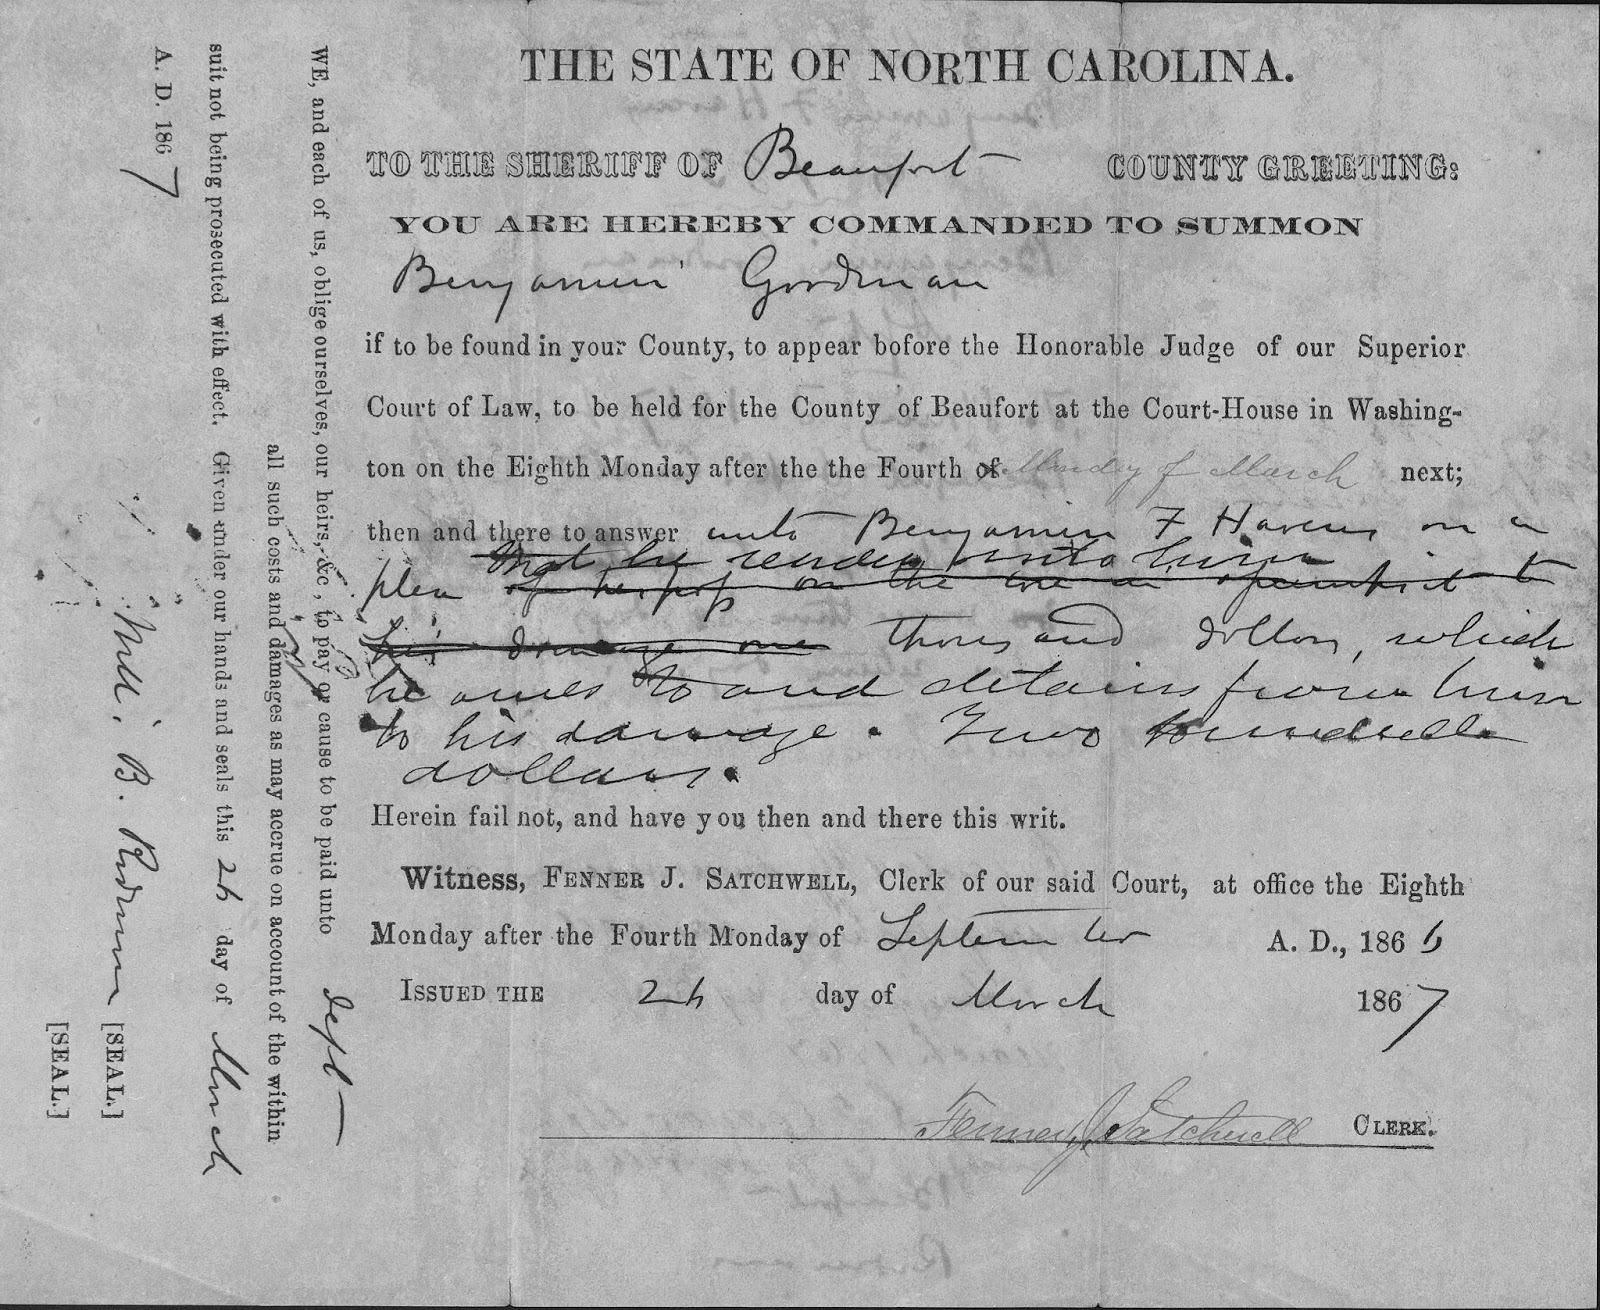 THE STATE OF NORTH CAROLINA.
TO THE SHERIFF OF Beaufort COUNTY GREETING:
YOU ARE HEREBY COMMANDED TO SUMMON
Benjamin Goodman
if to be found in your County, to appear bofore the Honorable Judge of our Superior
Court of Law, to be held for the County of Beaufort at the Court-House in Washing-
ton on the Eighth Monday after the the Fourth of Monday of March next;
then and there to answer unto Benjamin F Havens on a
that he render unto him
plea of on the case in to
his damage one thousand dollars, which
he owes to and detains from him
to his damage. Two hundred
dollars.
Herein fail not, and have you then and there this writ.
Witness, FENNER J. SATCHWELL, Clerk of our said Court, at office the Eighth
Monday after the Fourth Monday of September A. D., 1866
ISSUED THE 26 day of March 1867
Fenner J. Satchwell CLERK.
WE, and each of us, oblige ourselves, our heirs, &c, to pay or cause to be paid unto deft
all such costs and damages as may accrue on account of the within
suit not being prosecuted with effect. Given under our hands and seals this 26 day of March
A. D. 1867
Will. B. Rodman [SEAL.]
[SEAL.]